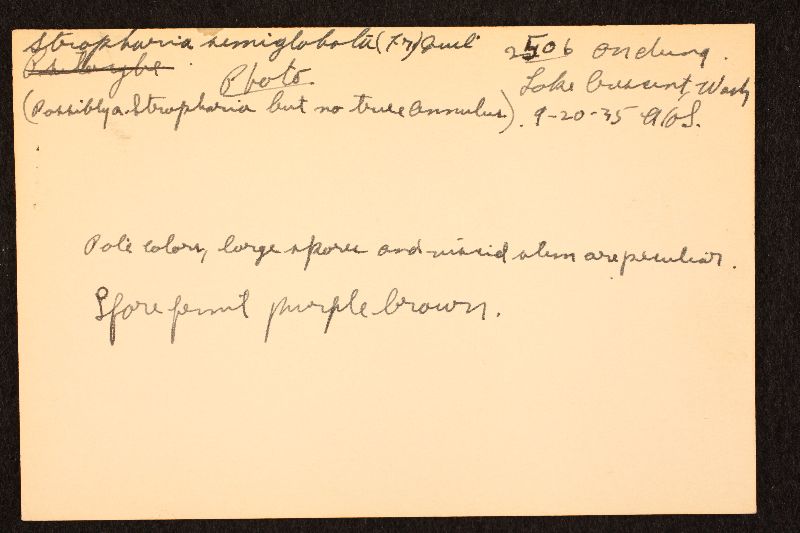 Stropharia semiglobata (Fr) Quel
Psilocybe
Photo
(Possibly a Stropharia but no true annulus).
2506 on dung.
Lake Crescent, Wash
9-20-35 AHS.
Pale colors, large spores and viscid stem are peculiar.
Spore print purple brown.